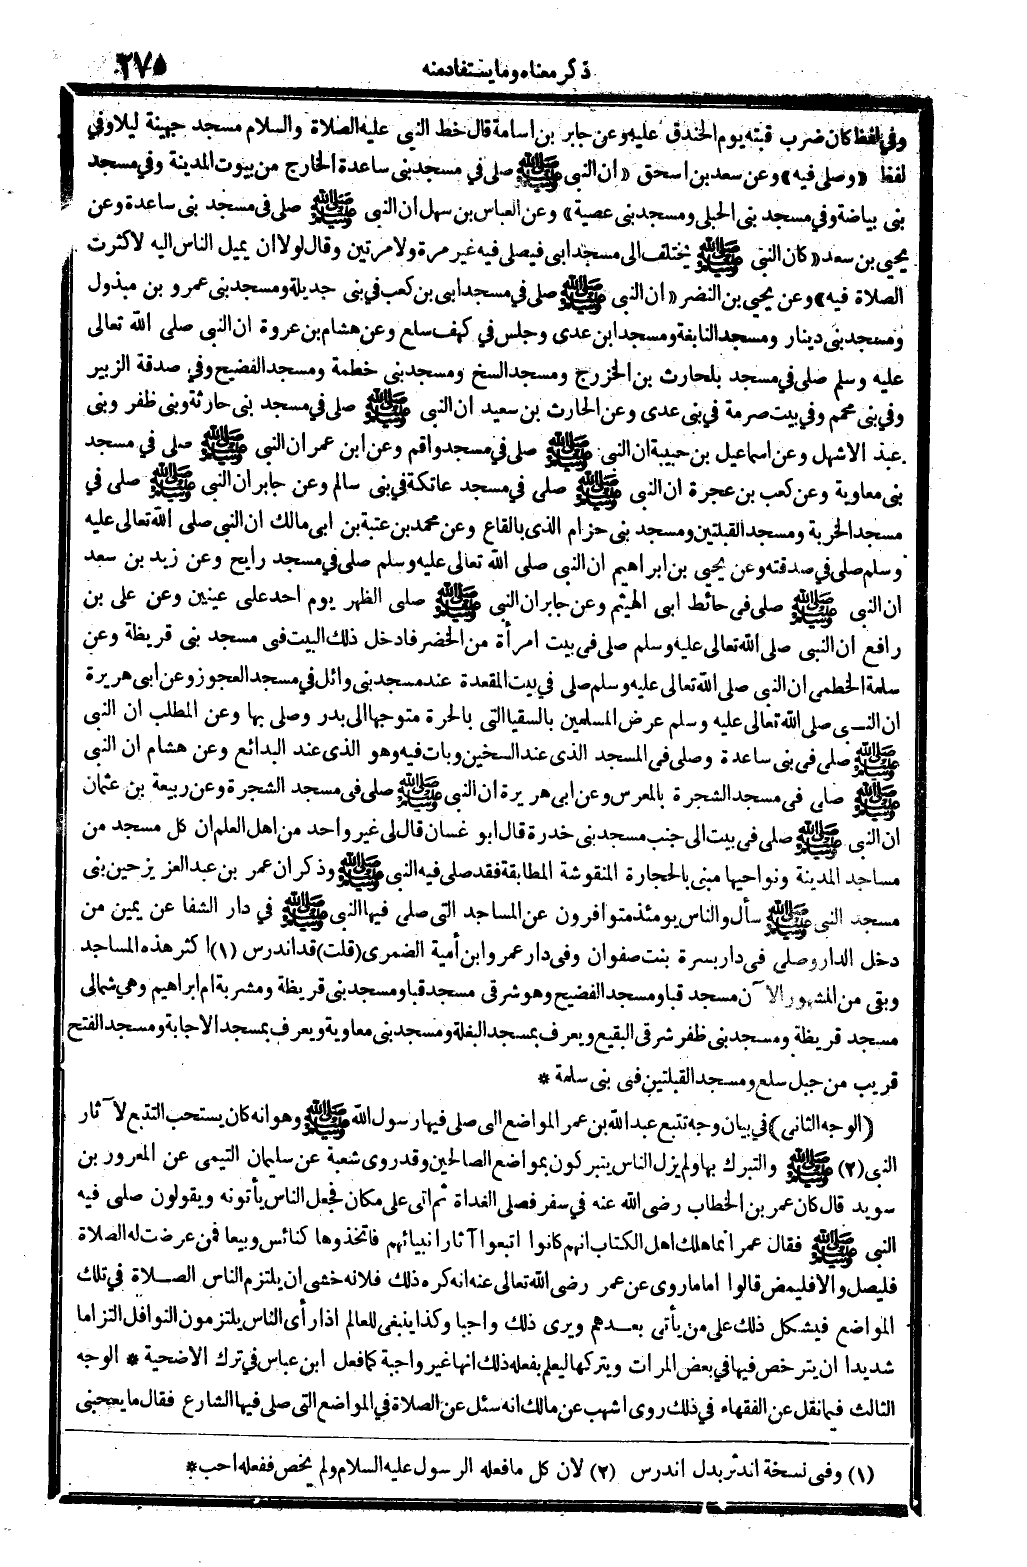 ذكر معناه وما يستفاد منه
٢٧٥
وفي لفظ كان ضرب قبته يوم الخندق عليه وعن جابر بن اسامة قال خط النبي عليه الصلاة والسلام مسجد جهينة ليلا وفي
لفظ «وصلى فيه» وعن سعد بن اسحق «ان النبي ﷺ صلى في مسجد بنى ساعدة الخارج من بيوت المدينة وفي مسجد
بنى بياضة وفي مسجد بنى الحبلى ومسجد بنى عصية» وعن العباس بن سهل ان النبي ﷺ صلى في مسجد بنى ساعدة وعن
يحيى بن سعد «كان النبي ﷺ يختلف الى مسجد ابى فيصلى فيه غير مرة ولا مرتين وقال لولا ان يميل الناس اليه لاكثرت
الصلاة فيه» وعن يحيى بن النضر «ان النبي ﷺ صلى في مسجد ابى بن كعب في بنى جديلة ومسجد بنى عمرو بن مبذول
ومسجد بنى دينار ومسجد النابغة ومسجد ابن عدى وجلس في كهف سلع وعن هشام بن عروة ان النبي صلى الله تعالى
عليه وسلم صلى في مسجد بلحارث بن الخزرج ومسجد السخ ومسجد بنى خطمة ومسجد الفضيح وفي صدقة الزبير
وفي بنى محمم وفي بيت صرمة في بنى عدى وعن الحارث بن سعيد ان النبي ﷺ صلى في مسجد بنى حارثة وبنى ظفر وبنى
عبد الاشهل وعن اسماعيل بن حبيبة ان النبي ﷺ صلى في مسجد واقم وعن ابن عمر ان النبي ﷺ صلى في مسجد
بنى معاوية وعن كعب بن عجرة ان النبي ﷺ صلى في مسجد عاتكة في بنى سالم وعن جابر ان النبي ﷺ صلى في
مسجد الخربة ومسجد القبلتين ومسجد بنى حزام الذى بالقاع وعن محمد بن عتبة بن ابى مالك ان النبي صلى الله تعالى عليه
وسلم صلى في صدقته وعن يحيى بن ابراهيم ان النبي صلى الله تعالى عليه وسلم صلى في مسجد رايح وعن زيد بن سعد
ان النبي ﷺ صلى في حائط ابى الهيثم وعن جابر ان النبي ﷺ صلى الظهر يوم احد على عينين وعن على بن
رافع ان النبي صلى الله تعالى عليه وسلم صلى في بيت امرأة من الخضر فادخل ذلك البيت في مسجد بنى قريظة وعن
سلمة الخطمى ان النبي صلى الله تعالى عليه وسلم صلى في بيت المقعدة عند مسجد بنى وائل في مسجد العجوز وعن ابى هريرة
ان النبي صلى الله تعالى عليه وسلم عرض المسلمين بالسقيا التى بالحرة متوجها الى بدر وصلى بها وعن المطلب ان النبي
ﷺ صلى في بنى ساعدة وصلى في المسجد الذى عند السخين وبات فيه وهو الذى عند البدائع وعن هشام ان النبي
ﷺ صلى في مسجد الشجرة بالمعرس وعن ابى هريرة ان النبي ﷺ صلى في مسجد الشجرة وعن ربيعة بن عثمان
ان النبي ﷺ صلى في بيت الى جنب مسجد بنى خدرة قال ابو غسان قال لى غير واحد من اهل العلم ان كل مسجد من
مساجد المدينة ونواحيها مبنى بالحجارة المنقوشة المطابقة فقد صلى فيه النبي ﷺ وذكر ان عمر بن عبد العزيز حين بنى
مسجد النبي ﷺ سأل والناس يومئذ متوافرون عن المساجد التى صلى فيها النبي ﷺ في دار الشفا عن يمين من
دخل الدار وصلى في دار بسرة بنت صفوان وفى دار عمرو ابن أمية الضمرى (قلت) قد اندرس (١) اكثر هذه المساجد
وبقى من المشهور الآن مسجد قبا ومسجد الفضيح وهو شرقى مسجد قبا ومسجد بنى قريظة ومشربة ام ابراهيم وهي شمالى
مسجد قريظة ومسجد بنى ظفر شرقى البقيع ويعرف بمسجد البغلة ومسجد بنى معاوية ويعرف بمسجد الاجابة ومسجد الفتح
قريب من جبل سلع ومسجد القبلتين في بنى سلمة *
(الوجه الثانى) في بيان وجه تتبع عبد الله بن عمر المواضع التى صلى فيها رسول الله ﷺ وهو انه كان يستحب التتبع لآثار
النبي (٢) ﷺ والتبرك بها ولم يزل الناس يتبركون بمواضع الصالحين وقد روى شعبة عن سليمان التيمى عن المعرور بن
سويد قال كان عمر بن الخطاب رضى الله عنه في سفر فصلى الغداة ثم اتى على مكان فجعل الناس يأتونه ويقولون صلى فيه
النبي ﷺ فقال عمر انما هلك اهل الكتاب انهم كانوا اتبعوا آثار انبيائهم فاتخذوها كنائس وبيعا فمن عرضت له الصلاة
فليصل والا فليمض قالوا اما ما روى عن عمر رضى الله تعالى عنه انه كره ذلك فلانه خشى ان يلتزم الناس الصلاة في تلك
المواضع فيشكل ذلك على من يأتى بعدهم ويرى ذلك واجبا وكذا ينبغى للعالم اذا رأى الناس يلتزمون النوافل التزاما
شديدا ان يترخص فيها في بعض المرات ويتركها ليعلم بفعله ذلك انها غير واجبة كما فعل ابن عباس في ترك الاضحية * الوجه
الثالث فيما نقل عن الفقهاء في ذلك روى اشهب عن مالك انه سئل عن الصلاة في المواضع التى صلى فيها الشارع فقال ما يعجبنى
(١) وفى نسخة اندثر بدل اندرس (٢) لان كل ما فعله الرسول عليه السلام ولم يخص ففعله احب *